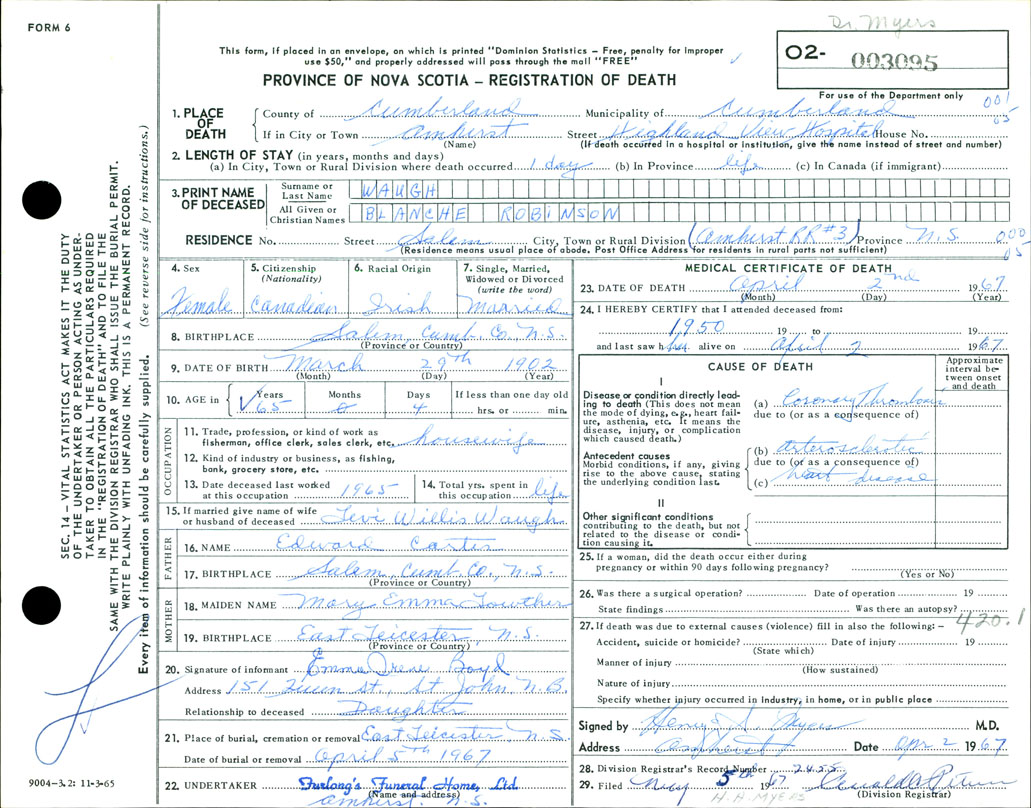 FORM 6
Dr. Myers
This form, if placed in an envelope, on which is printed "Dominion Statistics – Free, penalty for improper
use $50," and properly addressed will pass through the mail "FREE"
O2- 003095
PROVINCE OF NOVA SCOTIA – REGISTRATION OF DEATH
For use of the Department only
001
05
1. PLACE OF DEATH County of Cumberland Municipality of Cumberland
If in City or Town Amherst Street Highland View Hospital House No.
(Name) (If death occurred in a hospital or institution, give the name instead of street and number)
2. LENGTH OF STAY (in years, months and days)
(a) In City, Town or Rural Division where death occurred 1 day (b) In Province life (c) In Canada (if immigrant)
3. PRINT NAME OF DECEASED Surname or Last Name WAUGH
All Given or Christian Names BLANCHE ROBINSON
RESIDENCE No. Street Salem City, Town or Rural Division (Amherst RR #3) Province N.S.
(Residence means usual place of abode. Post Office Address for residents in rural parts not sufficient)
000
05
4. Sex Female
5. Citizenship (Nationality) Canadian
6. Racial Origin Irish
7. Single, Married, Widowed or Divorced (write the word) Married
8. BIRTHPLACE Salem, Cumb. Co., N.S.
(Province or Country)
9. DATE OF BIRTH March 29th 1902
(Month) (Day) (Year)
10. AGE in Years 65 Months 0 Days 4 If less than one day old hrs. or min.
OCCUPATION
11. Trade, profession, or kind of work as fisherman, office clerk, sales clerk, etc. housewife
12. Kind of industry or business, as fishing, bank, grocery store, etc.
13. Date deceased last worked at this occupation 1965
14. Total yrs. spent in this occupation life
15. If married give name of wife or husband of deceased Levi Willis Waugh
FATHER
16. NAME Edward Carter
17. BIRTHPLACE Salem, Cumb. Co., N.S.
(Province or Country)
MOTHER
18. MAIDEN NAME Mary Emma Lowther
19. BIRTHPLACE East Leicester, N.S.
(Province or Country)
20. Signature of informant Emma Irene Boyd
Address 151 St, St. John N.B.
Relationship to deceased Daughter
21. Place of burial, cremation or removal East Leicester N.S.
Date of burial or removal April 5th 1967
22. UNDERTAKER Furlong's Funeral Home, Ltd.
(Name and address)
Amherst N.S.
9004–3.2: 11-3-65
MEDICAL CERTIFICATE OF DEATH
23. DATE OF DEATH April 2nd 1967
(Month) (Day) (Year)
24. I HEREBY CERTIFY that I attended deceased from:
1950 19 to 19
and last saw her alive on April 2 1967
CAUSE OF DEATH
Approximate interval between onset and death
I
Disease or condition directly leading to death (This does not mean the mode of dying, e.g., heart failure, asthenia, etc. It means the disease, injury, or complication which caused death.)
(a) Coronary Thrombosis
due to (or as a consequence of)
Antecedent causes
Morbid conditions, if any, giving rise to the above cause, stating the underlying condition last.
(b) arterosclerotic
due to (or as a consequence of)
(c) heart disease
II
Other significant conditions
contributing to the death, but not related to the disease or condition causing it.
25. If a woman, did the death occur either during
pregnancy or within 90 days following pregnancy?
(Yes or No)
26. Was there a surgical operation? Date of operation 19
State findings Was there an autopsy?
420.1
27. If death was due to external causes (violence) fill in also the following: –
Accident, suicide or homicide? Date of injury 19
(State which)
Manner of injury
(How sustained)
Nature of injury
Specify whether injury occurred in industry, in home, or in public place
Signed by Henry A. Myers M.D.
Address Amherst Date Apr 2 1967
28. Division Registrar's Record Number 2455
29. Filed May 5th 1967
(Division Registrar)
H. A. MYERS
SEC. 14 – VITAL STATISTICS ACT MAKES IT THE DUTY
OF THE UNDERTAKER OR PERSON ACTING AS UNDER-
TAKER TO OBTAIN ALL THE PARTICULARS REQUIRED
IN THE "REGISTRATION OF DEATH" AND TO FILE THE
SAME WITH THE DIVISION REGISTRAR WHO SHALL ISSUE THE BURIAL PERMIT.
WRITE PLAINLY WITH UNFADING INK. THIS IS A PERMANENT RECORD.
Every item of information should be carefully supplied. (See reverse side for instructions.)